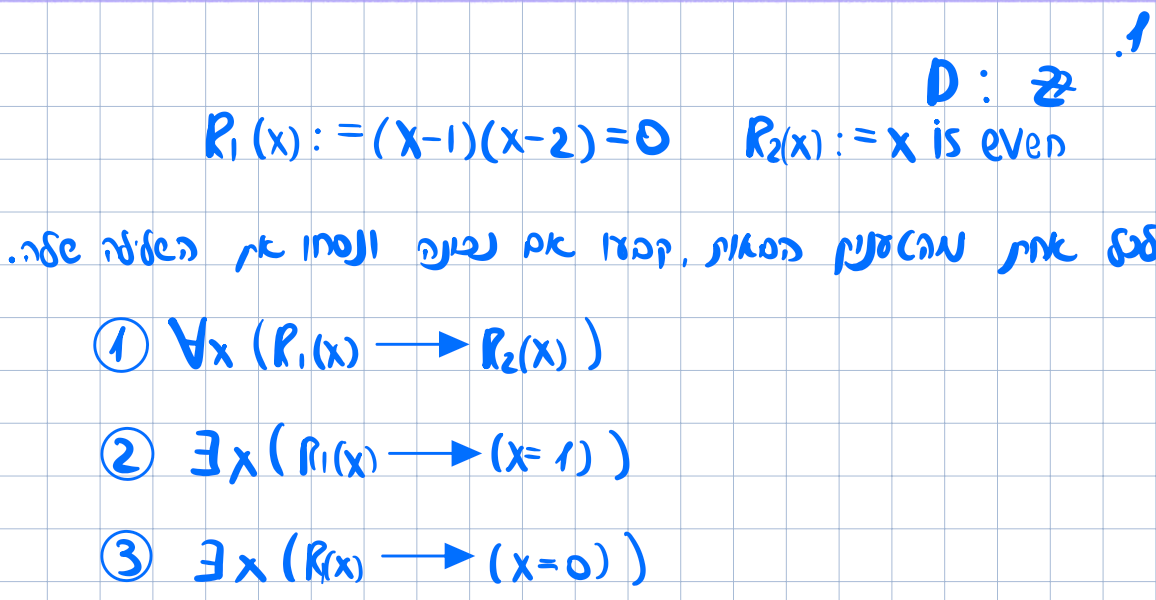 .1
D : ℤ
R₁(x) := (x-1)(x-2)=0 R₂(x) := x is even
לכל אחת מהטענות הבאות, קבעו אם נכונה ונסחו את השלילה שלה.
① ∀x (R₁(x) ⟶ R₂(x))
② ∃x (R₁(x) ⟶ (x=1))
③ ∃x (R₁(x) ⟶ (x=0))